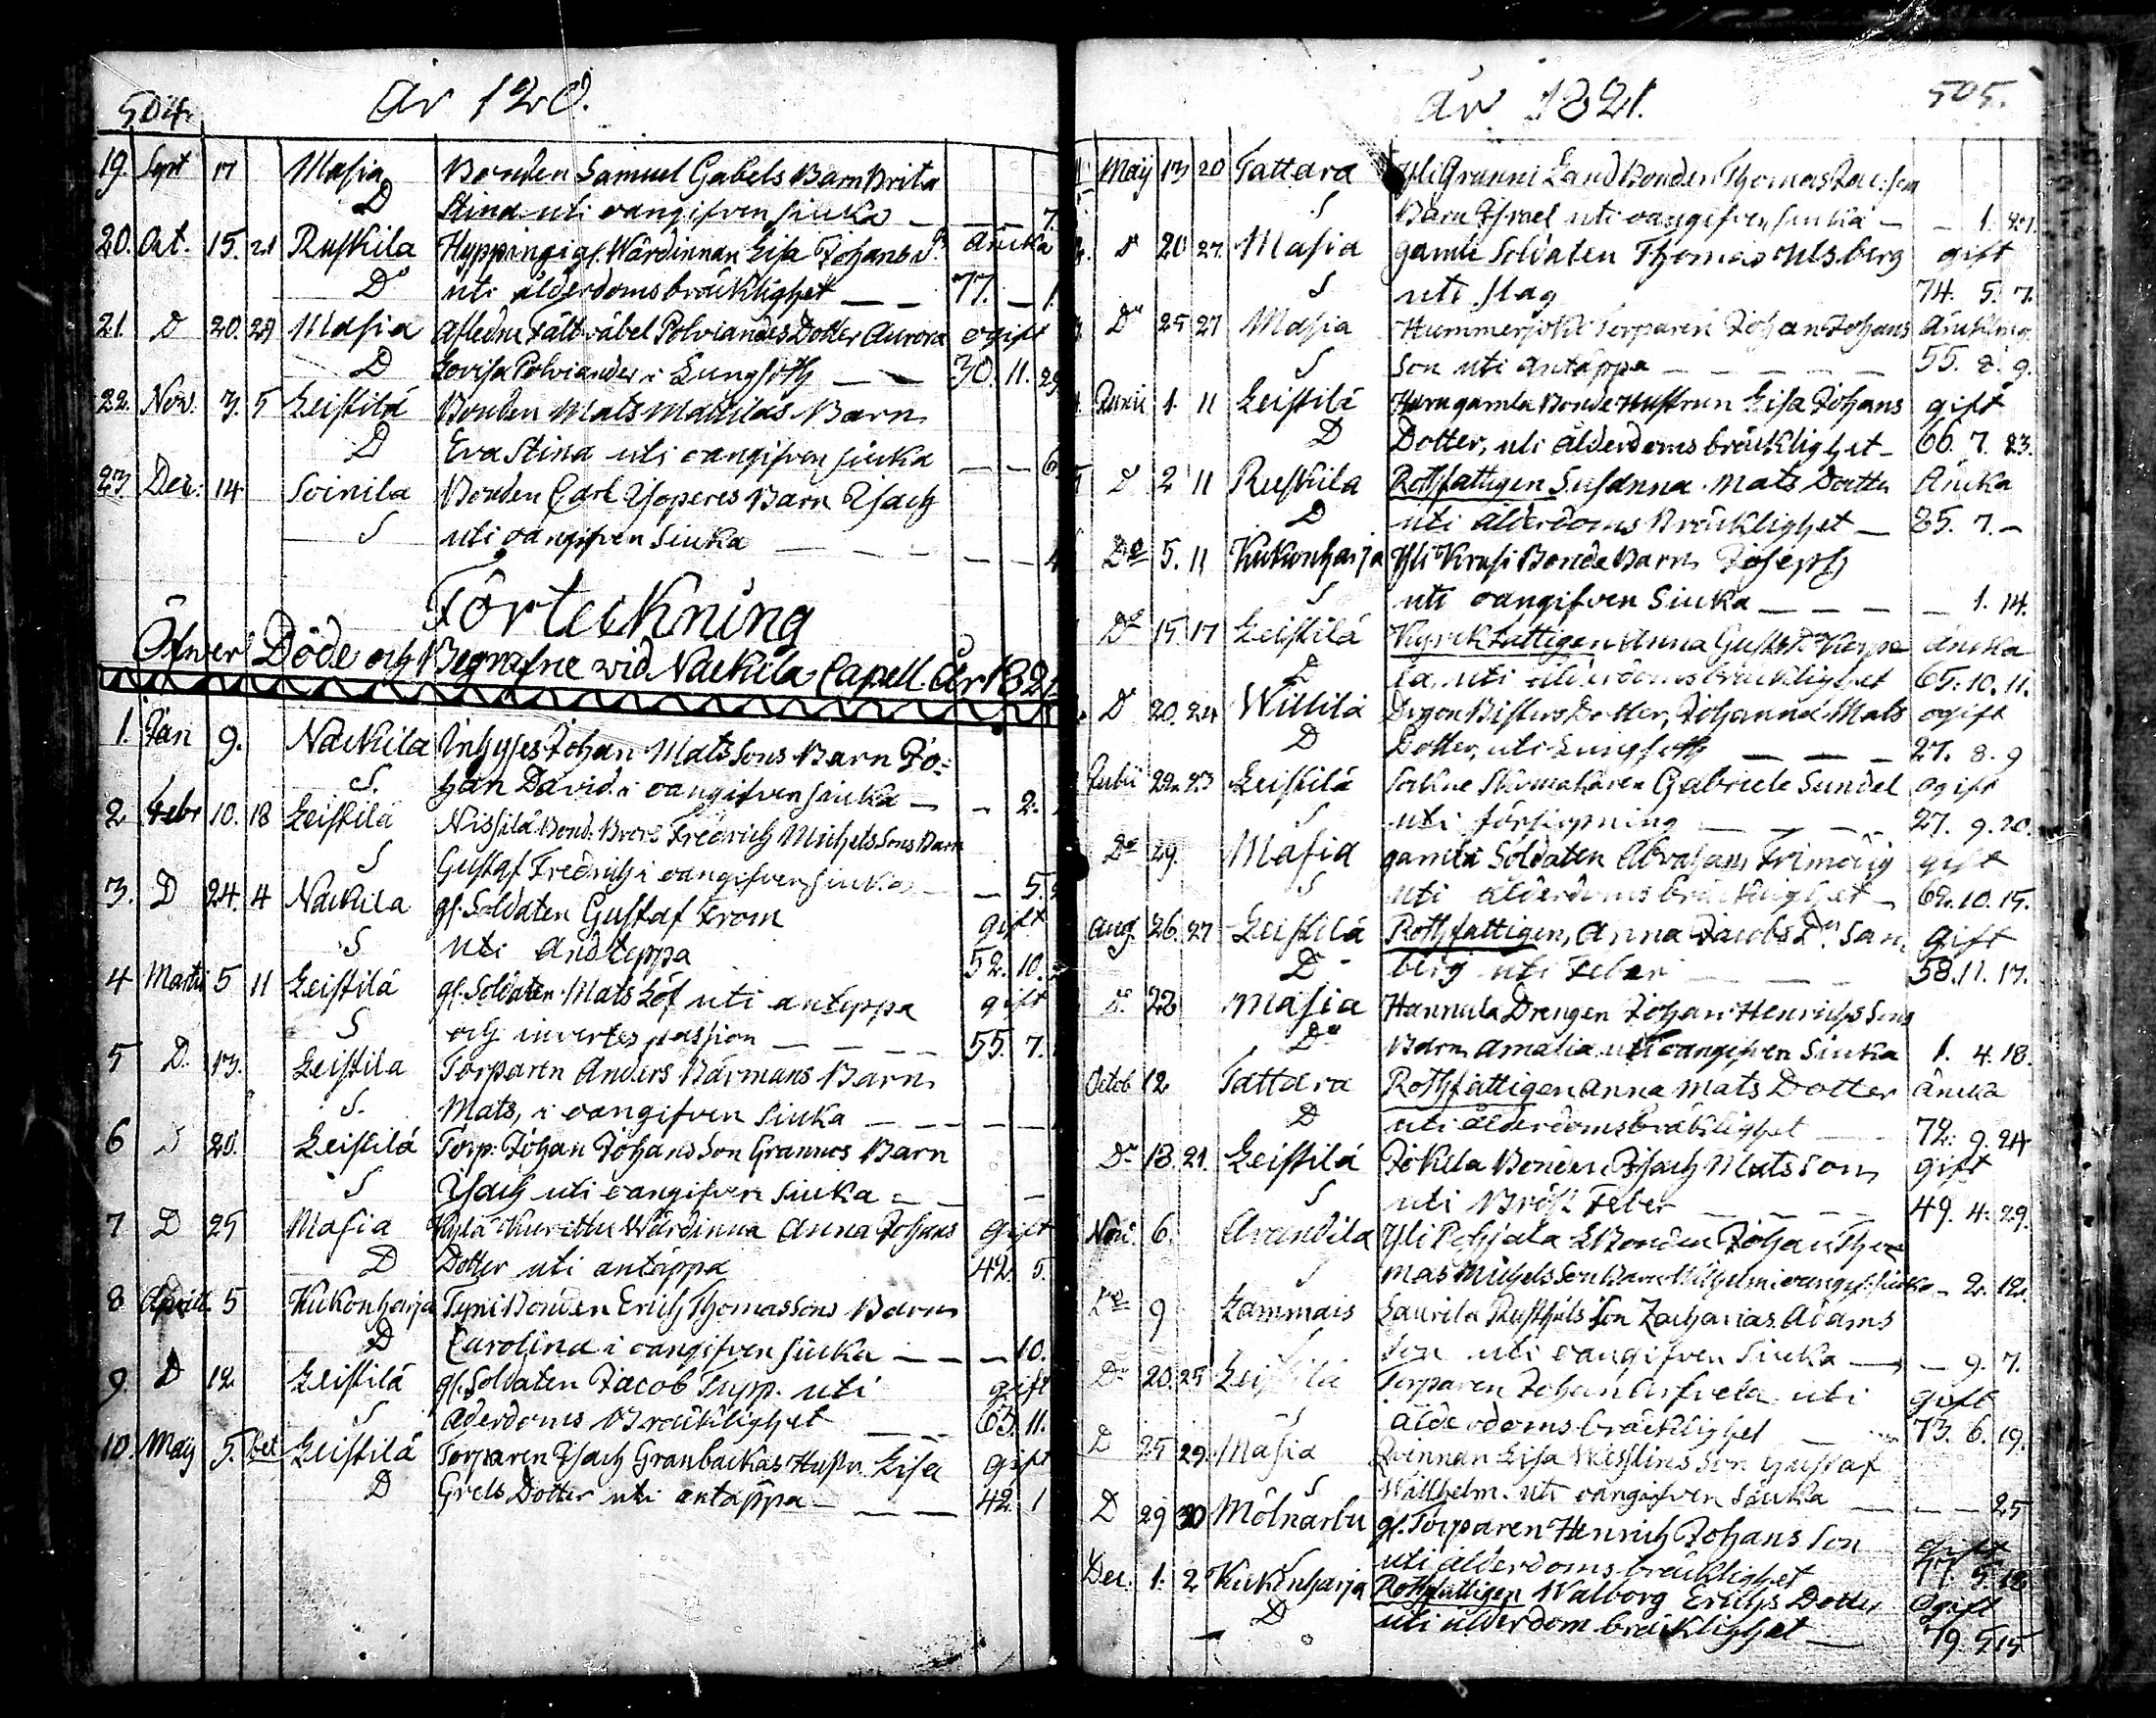 504.
år 1820.
19. Sept 17 Masia Bonden Samuel Gabels Barn Brita
D Stina uti oangifven siuka — — 7.
20. Oct. 15. 21 Ruskila Hyppingi gl. Wärdinnan Lisa Johans dr. änka
Do uti ålderdoms bräcklighet — — 77. — 1.
21. D 20. 29 Masia afledne Fältväbel Polvianders Dotter Aurora ogift
D Lovisa Polviander i Lungsoth — — 30. 11. 29
22. Nov. 3. 5 Leistilä Bonden Mats Mattilas Barn
D Eva Stina uti oangifven siuka — — 6
23. Dec. 14 Soinila Bonden Carl Isoperes Barn Isach
S uti oangifven Siuka — — — — 4
Förteckning
Öfwer Döde och Begrafne wid Nackila Capell År 1821
1. Jan 9. Nackila Inhyses Johan Mats Sons Barn Jo-
S. han David i oangifven siuka — — 2.
2 Febr 10. 18 Leistilä Nissilä Bond. Brors Fredrich Michels Sons Barn
S Gustaf Fredrich i oangifven siuka — — 5.
3. D 24. 4 Nackila gl. Soldaten Gustaf From gift
S uti Andteppa 52. 10.
4 Martii 5 11 Leistilä gl. Soldaten Mats Löf uti anteppa gift
S och invertes passion — — — 55. 7.
5 D. 13. Leistila Torparen Anders Bärmans Barn
S. Mats, i oangifven Siuka — — — —
6 D 20. Leistilä Torp. Johan Johans Son Grannos Barn
S Isach uti oangifven Siuka — — —
7 D 25 Masia Kylä Kurettu Wärdinna Anna Johans gift
D Dotter uti antäppa 42. 5.
8 Aprill. 5 Kukonharja Tyni Bonden Erich Thomas Sons Barn
D Carolina i oangifven siuka — — — 10.
9. D 12 Leistilä gl. Soldaten Jacob Tupp. uti gift
S ålderdoms Bräcklighet 63. 11.
10. Maij 5. Leistilä Torparen Isach Granbackas Hustru Lisa gift
D Grels Dotter uti antäppa — — — 42. 1
505.
år 1821.
Maij 13 20 Tattara Yli Granni Land Bonden Thomas Zac: son
S Barn Israel uti oangifven siuka — — 1. 27.
D 20 27. Masia gamle Soldaten Thomas Ulsberg gift
S uti slag 74. 5. 7.
Do 25 27 Masia Torparen Johan Johans änkling
S Son uti antäppa — — — — 55. 8. 9.
Junii 1. 11 Leistilä gamla Bonde Hustrun Lisa Johans gift
D Dotter, uti ålderdoms bräcklighet — 66. 7. 23.
D 2 11 Ruskila Rothfattigen Susanna Mats Dotter Änka
D uti Ålderdoms Bräcklighet — 85. 7. —
Do 5. 11 Kukonharja Yli Krasi Bonde Barn Joseph
S uti oangifven Siuka — — — — 1. 14.
Do 15 17 Leistilä Kyrckfattigen Anna Gustafs Dr änka
D uti ålderdoms bräcklighet 65. 10. 11.
D 20. 24 Willilä Dotter, Johanna Mats ogift
D Dotter, uti Lungsoth — — — 27. 8. 9
Julii 22 23 Leistilä Gabriel Sundel ogift
S uti — — — 27. 9. 20.
Do 29. Masia gamla Soldaten Abraham gift
S uti ålderdoms bräcklighet — 62. 10. 15.
Aug. 26. 27 Leistilä Rothfattigen, Anna Jacobs Dr San gift
D berg uti Feber — — — 58. 11. 17.
Do 28 Masia Hannula Drengen Johan Henrichs Sons
Do Barn Amalia uti oangifven Siuka 1. 4. 18.
Octob 12 Tattara Rothfattigen Anna Mats Dotter änka
D uti ålderdomsbräklighet — 72. 9. 24
Do 18. 21. Leistilä Jokila Bonden Isach Mats Son gift
S uti Bröst Feber — — — 49. 4. 29.
Nov. 6. Arandila Yli Pohjala L Bonden Johan Tho-
S mas Michels Son Barn Wilhelm i oangif: siuka — 2. 12.
Do 9 Lammais Laurila Rusthåls Son Zacharias Adams
S Son uti oangifven Siuka — — 9. 7.
Do 20. 25 Leistilä Torparen Johan Arfvela uti gift
S ålderdoms bräcklighet — — 73. 6. 19.
D 25 29. Masia Qvinnan Lisa Westlins Son Gustaf
S Willhelm. uti oangifven siuka — — — 25
D 29 30 Molnarbu gl. Torparen Henrich Johans Son gift
S uti ålderdoms bräcklighet 77. 5. 18
Dec. 1. 2 Kukonharja Rothfattigen Walborg Erichs Dotter Ogift
D uti ålderdom bräcklighet — 79. 5. 15